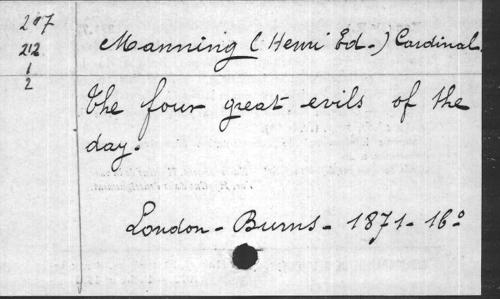 217
212
1
2
Manning (Henri Ed.) Cardinal.
The four great evils of the
day.
London - Burns - 1871 - 16º